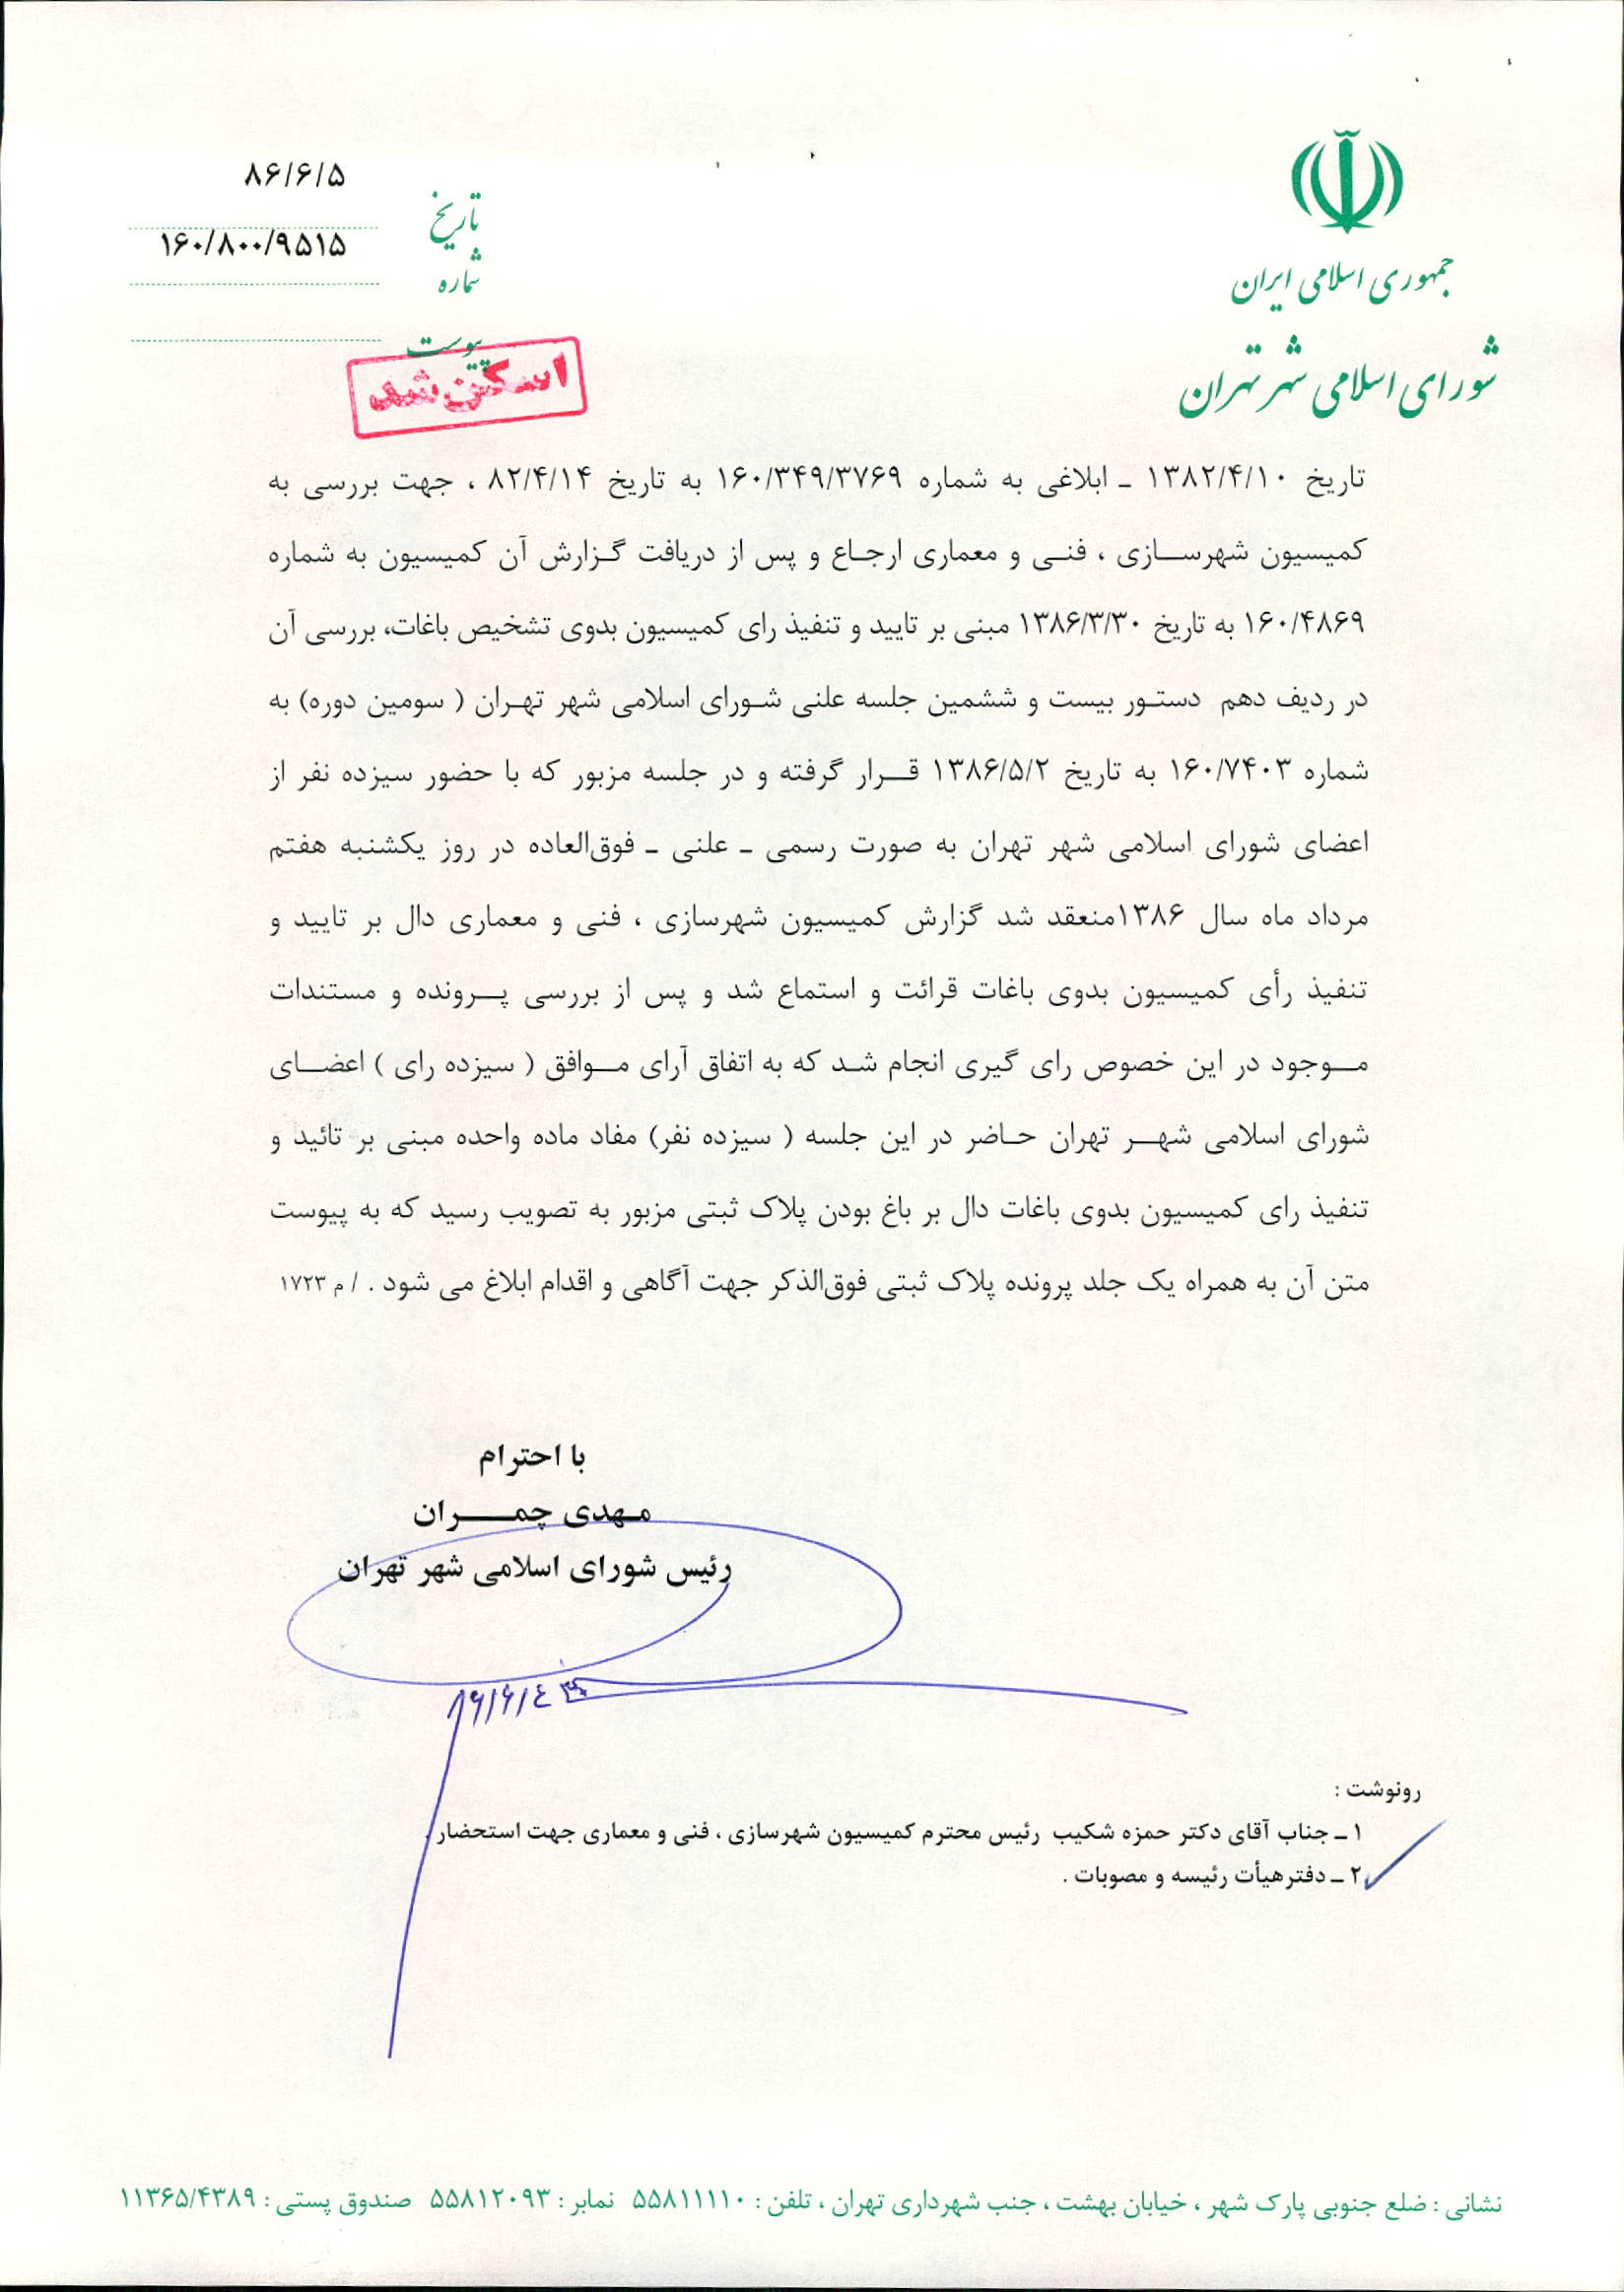 جمهوری اسلامی ایران
شورای اسلامی شهر تهران
۸۶/۶/۵
تاریخ
۱۶۰/۸۰۰/۹۵۱۵
شماره
پیوست
اسکن شد
تاریخ ۱۳۸۲/۴/۱۰ ـ ابلاغی به شماره ۱۶۰/۳۴۹/۳۷۶۹ به تاریخ ۸۲/۴/۱۴ ، جهت بررسی به
کمیسیون شهرسازی ، فنی و معماری ارجاع و پس از دریافت گزارش آن کمیسیون به شماره
۱۶۰/۴۸۶۹ به تاریخ ۱۳۸۶/۳/۳۰ مبنی بر تایید و تنفیذ رای کمیسیون بدوی تشخیص باغات، بررسی آن
در ردیف دهم دستور بیست و ششمین جلسه علنی شورای اسلامی شهر تهران ( سومین دوره) به
شماره ۱۶۰/۷۴۰۳ به تاریخ ۱۳۸۶/۵/۲ قرار گرفته و در جلسه مزبور که با حضور سیزده نفر از
اعضای شورای اسلامی شهر تهران به صورت رسمی ـ علنی ـ فوق‌العاده در روز یکشنبه هفتم
مرداد ماه سال ۱۳۸۶منعقد شد گزارش کمیسیون شهرسازی ، فنی و معماری دال بر تایید و
تنفیذ رأی کمیسیون بدوی باغات قرائت و استماع شد و پس از بررسی پرونده و مستندات
موجود در این خصوص رای گیری انجام شد که به اتفاق آرای موافق ( سیزده رای ) اعضای
شورای اسلامی شهر تهران حاضر در این جلسه ( سیزده نفر) مفاد ماده واحده مبنی بر تائید و
تنفیذ رای کمیسیون بدوی باغات دال بر باغ بودن پلاک ثبتی مزبور به تصویب رسید که به پیوست
متن آن به همراه یک جلد پرونده پلاک ثبتی فوق‌الذکر جهت آگاهی و اقدام ابلاغ می شود . / م ۱۷۲۳
با احترام
مهدی چمران
رئیس شورای اسلامی شهر تهران
۸۶/۶/٤
رونوشت :
۱ ـ جناب آقای دکتر حمزه شکیب رئیس محترم کمیسیون شهرسازی ، فنی و معماری جهت استحضار .
۲ ـ دفترهیأت رئیسه و مصوبات .
نشانی : ضلع جنوبی پارک شهر ، خیابان بهشت ، جنب شهرداری تهران ، تلفن : ۵۵۸۱۱۱۱۰ نمابر : ۵۵۸۱۲۰۹۳ صندوق پستی : ۱۱۳۶۵/۴۳۸۹